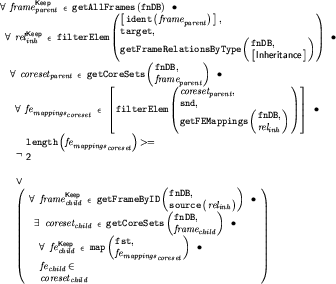 ∀ frame^Keep_parent ∈ getAllFrames (fnDB) •
∀ rel^Keep_inh ∈ filterElem ( [ ident ( frame_parent ) ] , target, getFrameRelationsByType ( fnDB, [Inheritance] ) ) •
∀ coreset_parent ∈ getCoreSets ( fnDB, frame_parent ) •
∀ fe_mappings_coreset ∈ [ filterElem ( coreset_parent, snd, getFEMappings ( fnDB, rel_inh ) ) ] •
¬ length ( fe_mappings_coreset ) >= 2
∨
( ∀ frame^Keep_child ∈ getFrameByID ( fnDB, source ( rel_inh ) ) •
∃ coreset_child ∈ getCoreSets ( fnDB, frame_child ) •
∀ fe^Keep_child ∈ map ( fst, fe_mappings_coreset ) •
fe_child ∈
coreset_child )